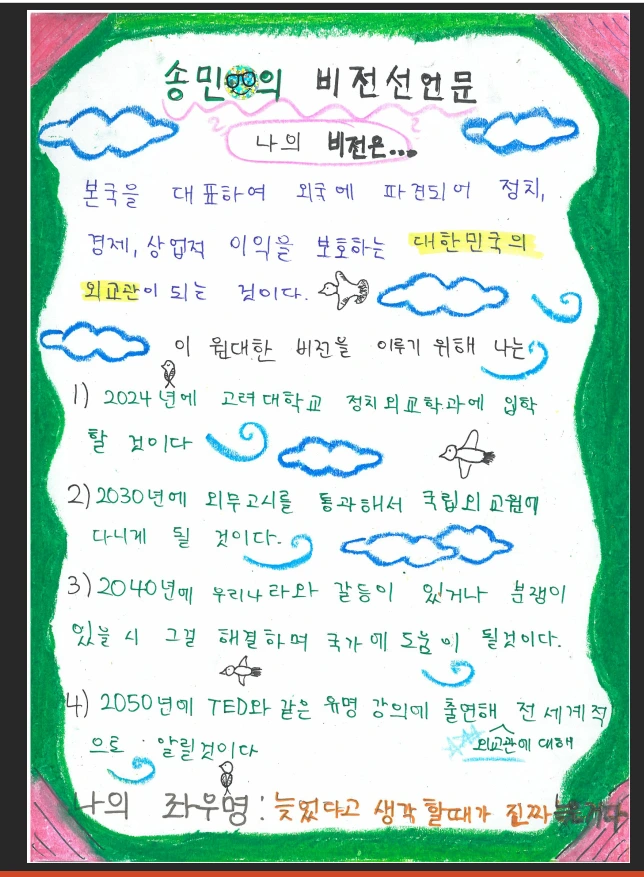 송민의 비전선언문
나의 비전은...
본국을 대표하여 외국에 파견되어 정치,
경제, 상업적 이익을 보호하는 대한민국의
외교관이 되는 것이다.
이 원대한 비전을 이루기 위해 나는
1) 2024년에 고려대학교 정치외교학과에 입학
할 것이다
2) 2030년에 외무고시를 통과해서 국립외교원에
다니게 될 것이다.
3) 2040년에 우리나라와 갈등이 있거나 분쟁이
있을 시 그걸 해결하며 국가에 도움이 될것이다.
4) 2050년에 TED와 같은 유명 강의에 출연해 전 세계적
외교관에 대해
으로 알릴것이다
나의 좌우명 : 늦었다고 생각할때가 진짜 늦은거다